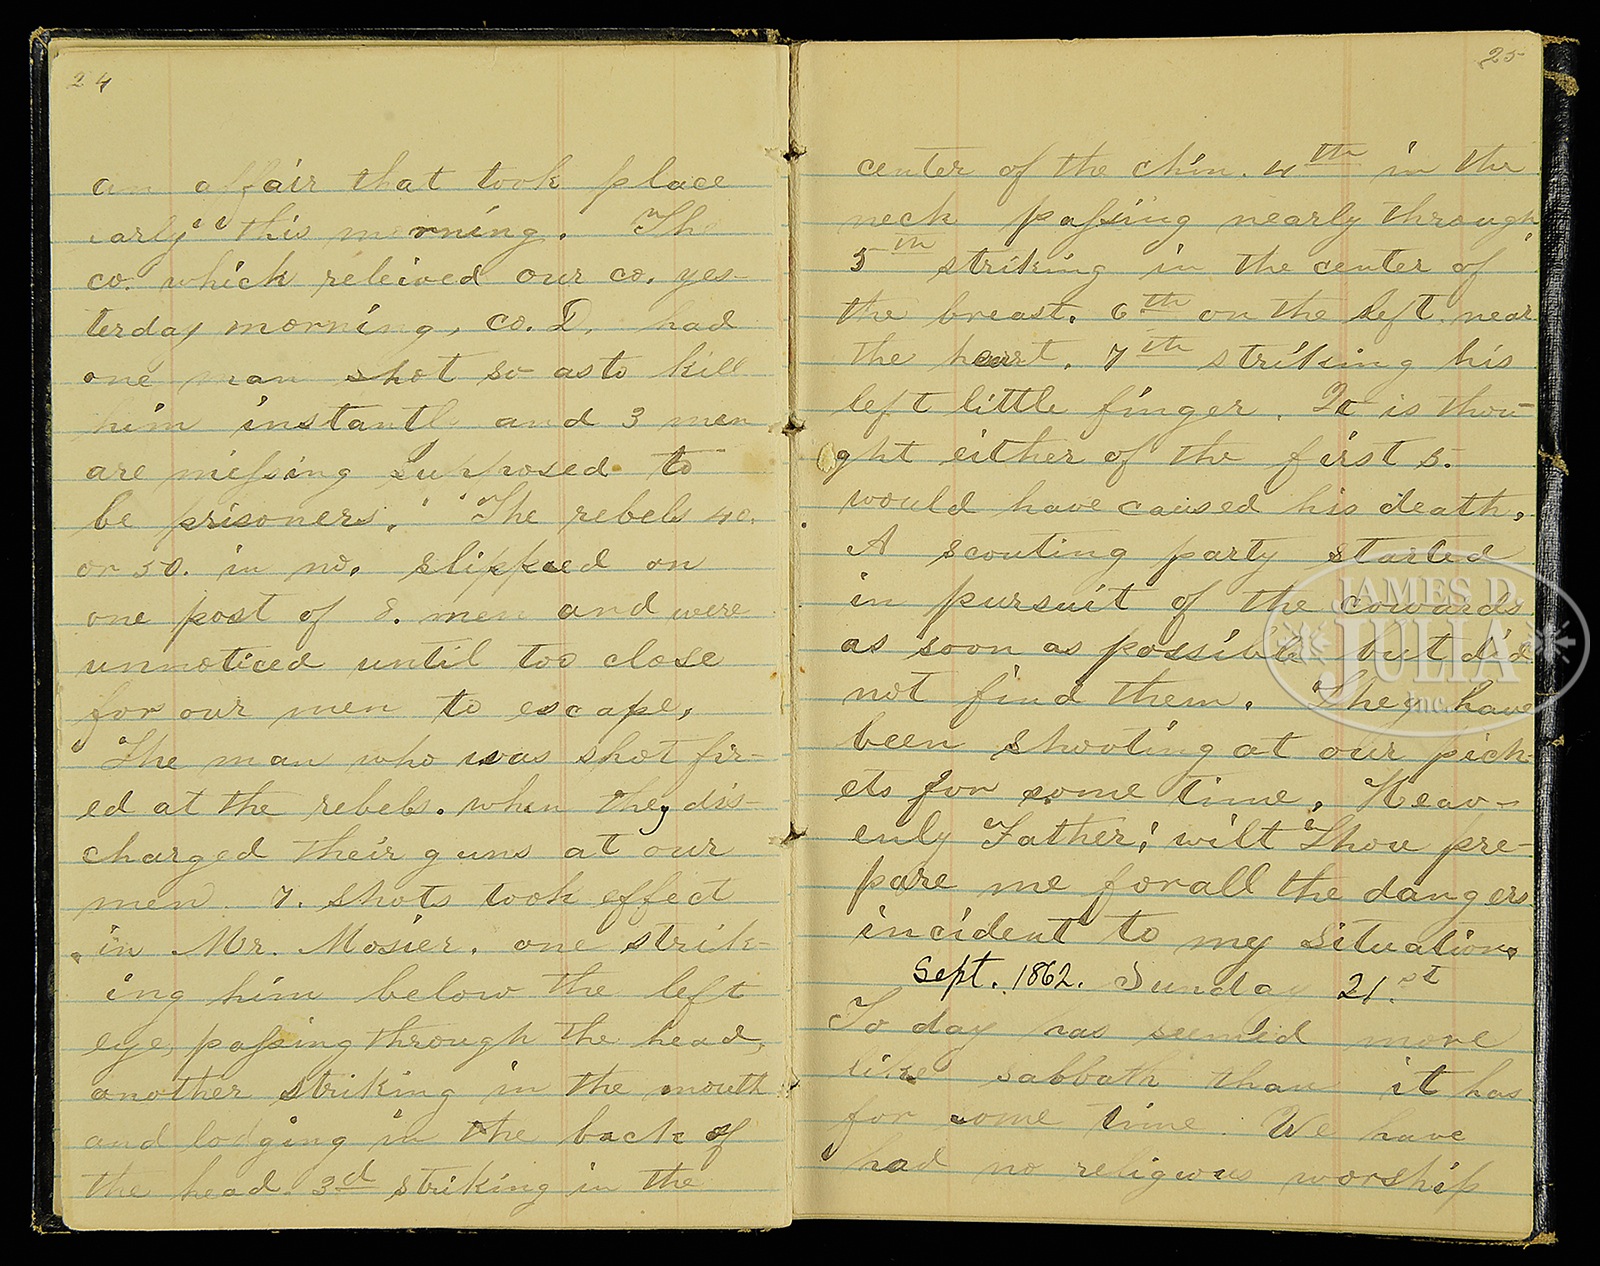 24
an affair that took place
early this morning. The
co. which releived our co. yes-
terday morning, co. D. had
one man shot so asto kill
him instantl and 3 men
are missing supposed to
be prisoners. The rebels 40.
or 50. in no. slipped on
one post of 8. men and were
unnoticed until too close
for our men to escape.
The man who was shot fir-
ed at the rebels. when they dis-
charged their guns at our
men. 7. shots took effect
in Mr. Mosier. one strik-
ing him below the left
eye, passing through the head,
another striking in the mouth
and lodging in the back of
the head. 3d striking in the
25
center of the chin. 4th in the
neck passing nearly through
5th striking in the center of
the breast. 6th on the left near
the heart. 7th striking his
left little finger. It is thou-
ght either of the first 5.
would have caused his death.
A scouting party started
in pursuit of the cowards
as soon as possible but did
not find them. They have
been shooting at our pick-
ets for some time. Heav-
enly Father; wilt Thou pre-
pare me for all the dangers
incident to my situation.
Sept. 1862. Sunday 21.st
To day has seemed more
like sabbath than it has
for some time. We have
had no religious worship
JAMES D.
JULIA
Inc.